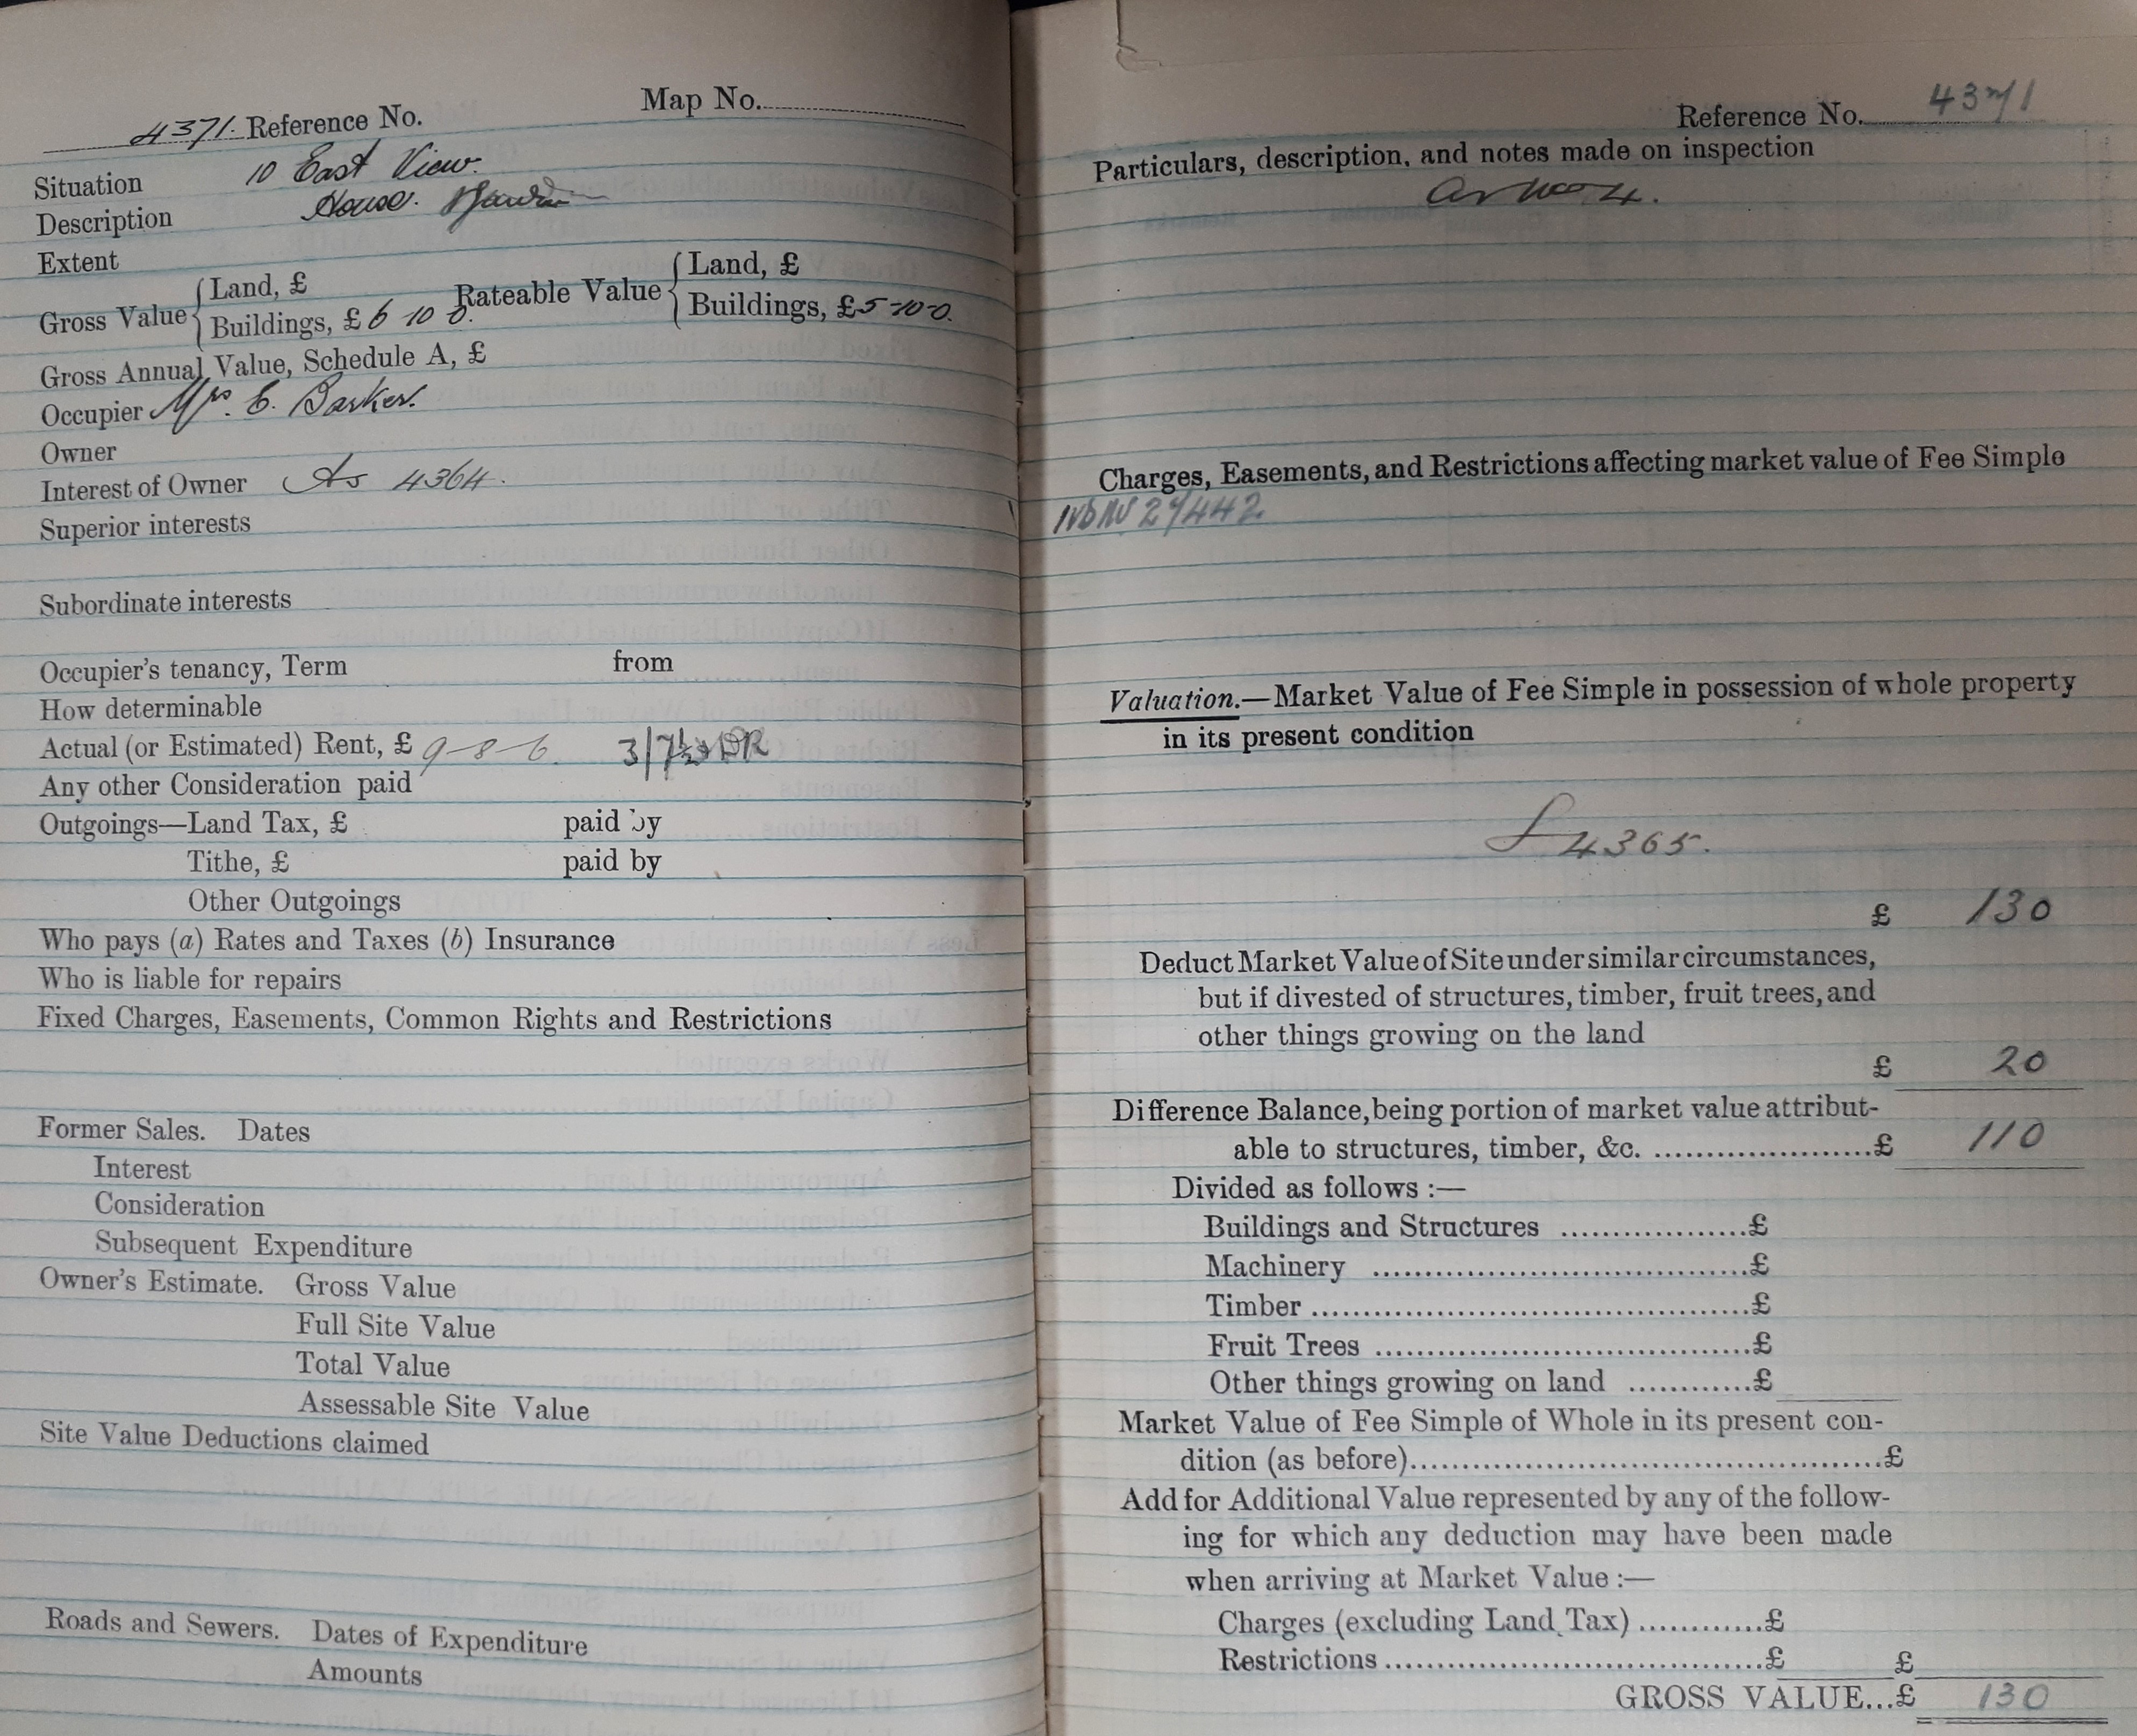 4371. Reference No. Map No.
Situation 10 East View.
Description House.
Extent
Gross Value { Land, £ Rateable Value { Land, £
Buildings, £ 6 10 0. Buildings, £ 5-10-0.
Gross Annual Value, Schedule A, £
Occupier Mrs. E. Barker.
Owner
Interest of Owner As 4364.
Superior interests
Subordinate interests
Occupier's tenancy, Term from
How determinable
Actual (or Estimated) Rent, £ 9-8-6. 3/7½
Any other Consideration paid
Outgoings—Land Tax, £ paid by
Tithe, £ paid by
Other Outgoings
Who pays (a) Rates and Taxes (b) Insurance
Who is liable for repairs
Fixed Charges, Easements, Common Rights and Restrictions
Former Sales. Dates
Interest
Consideration
Subsequent Expenditure
Owner's Estimate. Gross Value
Full Site Value
Total Value
Assessable Site Value
Site Value Deductions claimed
Roads and Sewers. Dates of Expenditure
Amounts
Reference No. 4371
Particulars, description, and notes made on inspection
Charges, Easements, and Restrictions affecting market value of Fee Simple
27442
Valuation.—Market Value of Fee Simple in possession of whole property
in its present condition
4365.
£ 130
Deduct Market Value of Site under similar circumstances,
but if divested of structures, timber, fruit trees, and
other things growing on the land
£ 20
Difference Balance, being portion of market value attribut-
able to structures, timber, &c. .....................£ 110
Divided as follows :—
Buildings and Structures ..................£
Machinery ....................................£
Timber ..........................................£
Fruit Trees ....................................£
Other things growing on land ............£
Market Value of Fee Simple of Whole in its present con-
dition (as before)..............................................£
Add for Additional Value represented by any of the follow-
ing for which any deduction may have been made
when arriving at Market Value :—
Charges (excluding Land Tax) ............£
Restrictions ....................................£ £
GROSS VALUE...£ 130